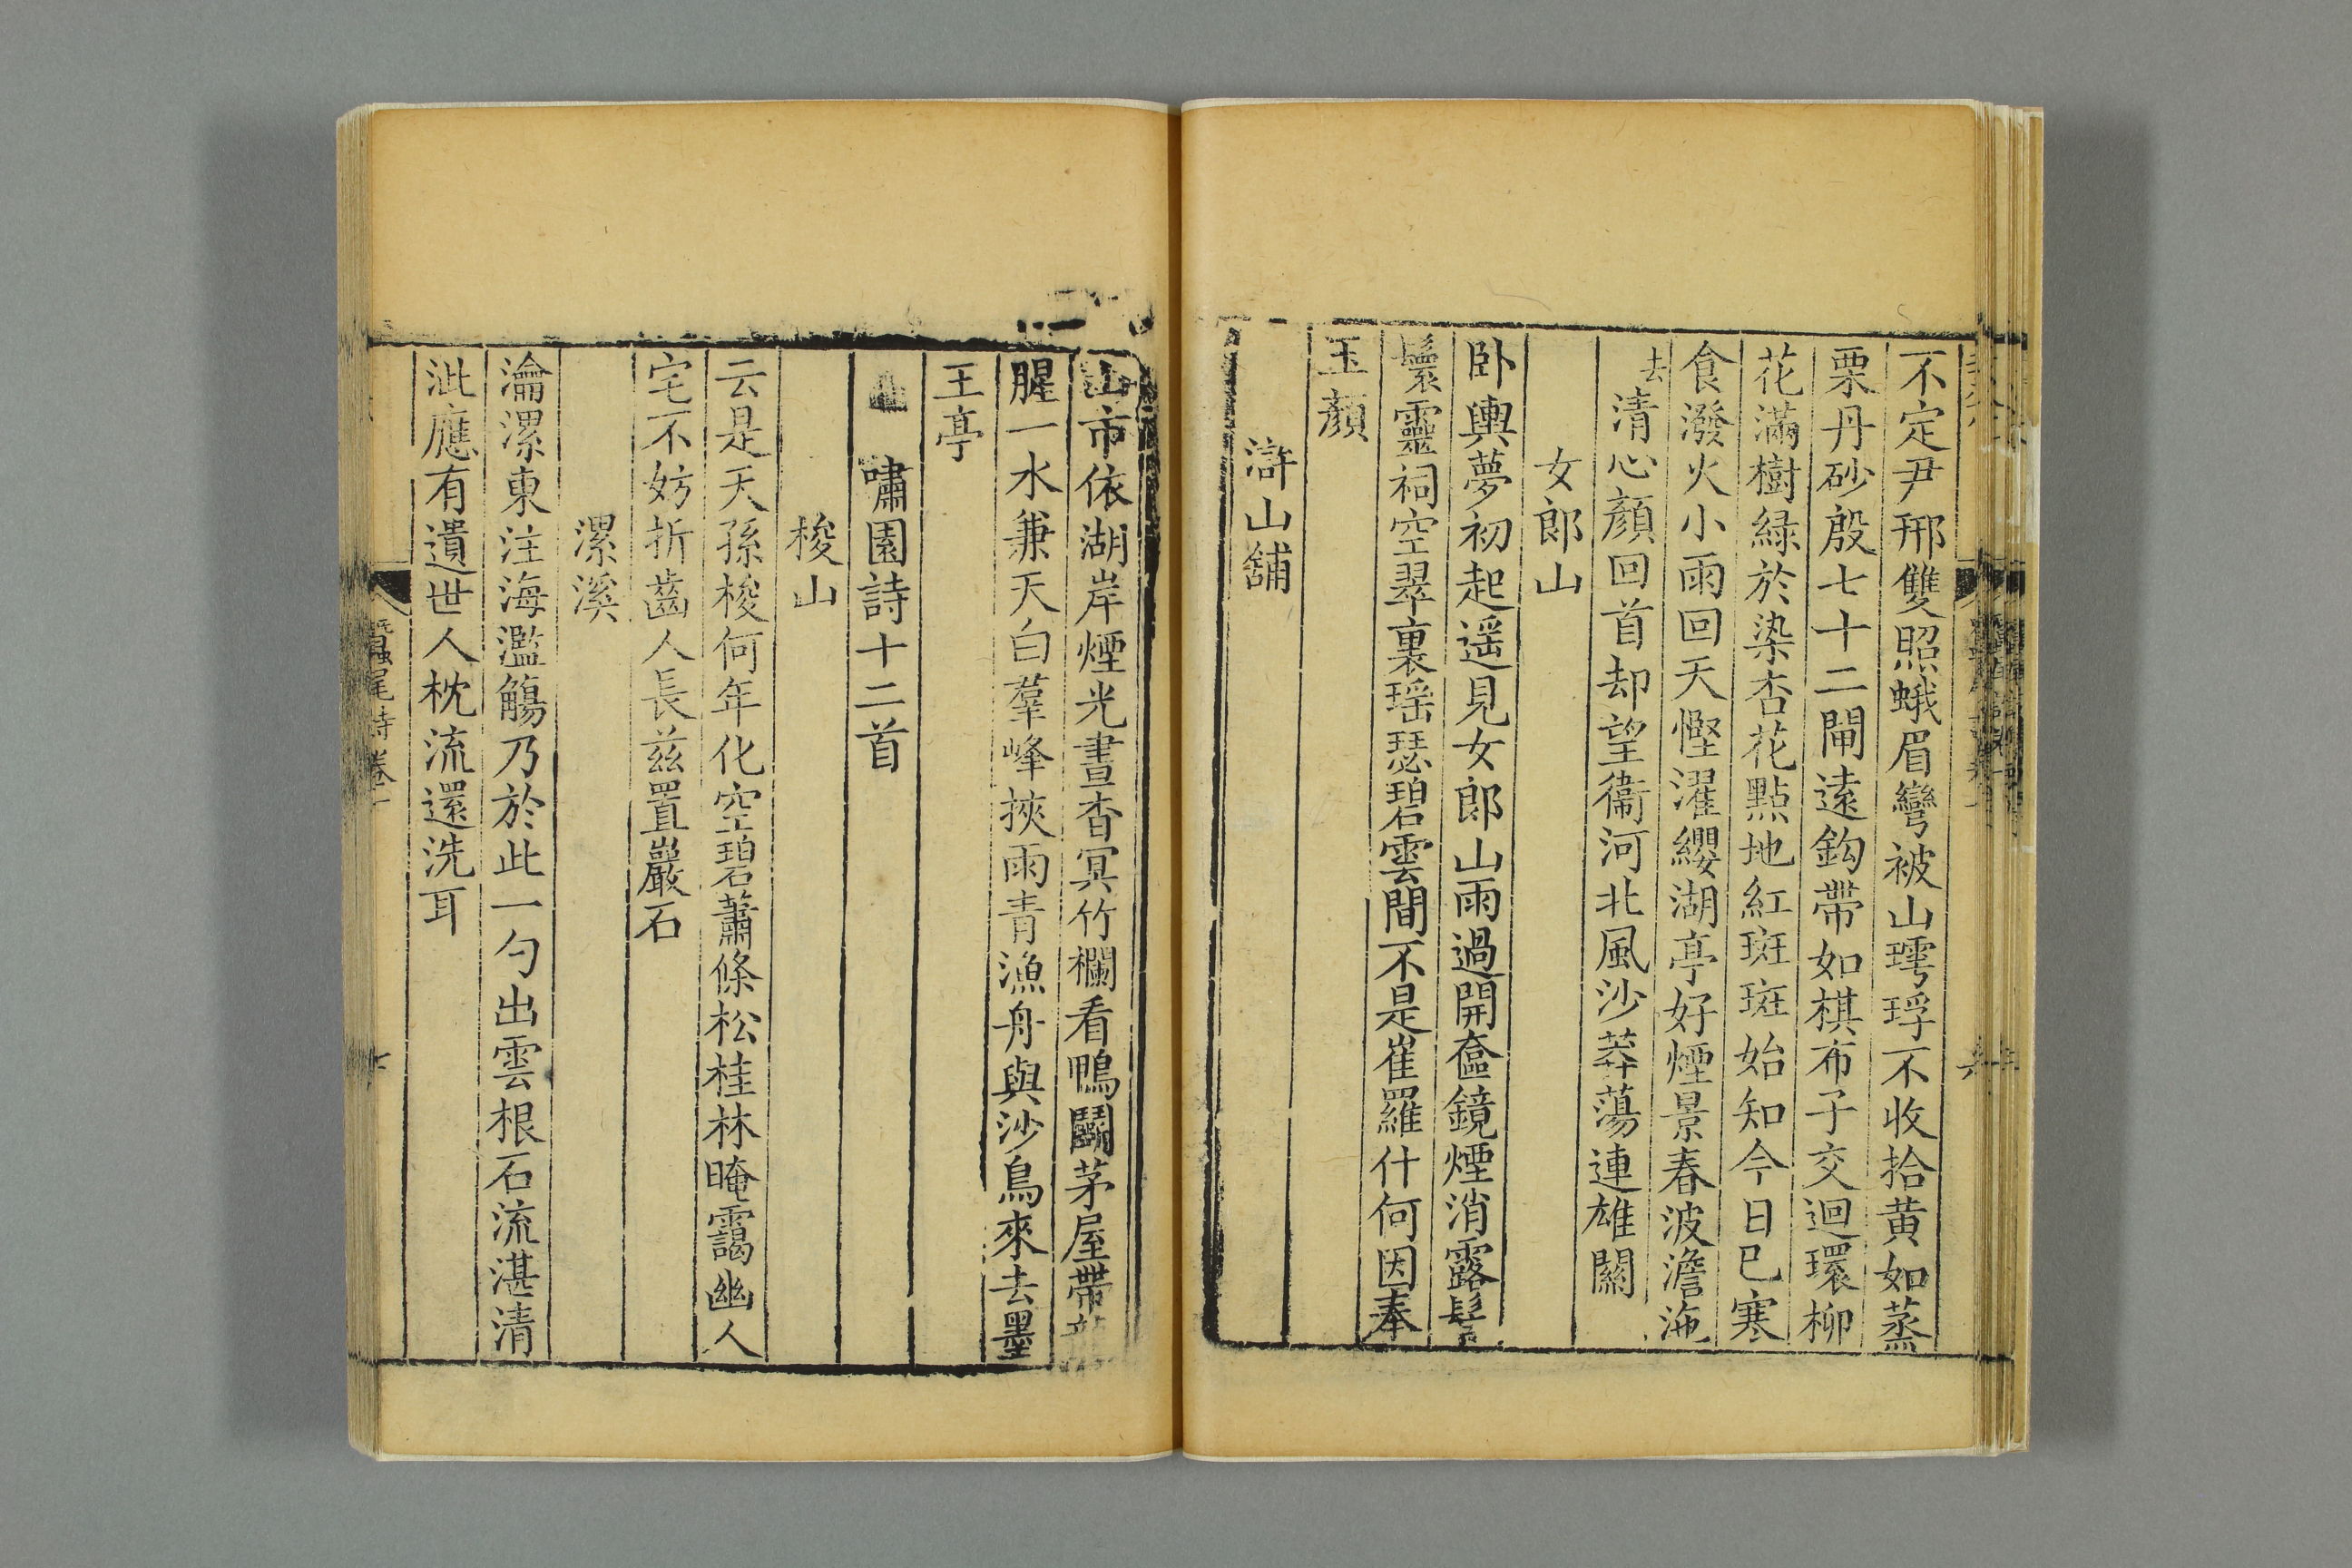 不定尹邢雙照蛾眉彎被山㻌琈不收拾黃如蒸
栗丹砂殷七十二閘遠鈎帶如棋布子交迴環柳
花滿樹綠於染杏花點地紅斑斑始知今日已寒
食潑火小雨回天慳濯纓湖亭好煙景春波澹沲
去清心顏回首却望衞河北風沙莽蕩連雄關
女郎山
卧輿夢初起遥見女郎山雨過開奩鏡煙消露髻
鬟靈祠空翠裏瑶瑟碧雲間不是崔羅什何因奉
玉顏
滸山舖
山市依湖岸煙光晝杳冥竹欄看鴨鬭茅屋帶
腥一水兼天白羣峰挾雨青漁舟與沙鳥來去墨
王亭
嘯園詩十二首
梭山
云是天孫梭何年化空碧蕭條松桂林晻靄幽人
宅不妨折齒人長兹置巖石
漯溪
瀹漯東注海濫觴乃於此一勺出雲根石流湛清
泚應有遺世人枕流還洗耳
蠶尾詩卷一
七